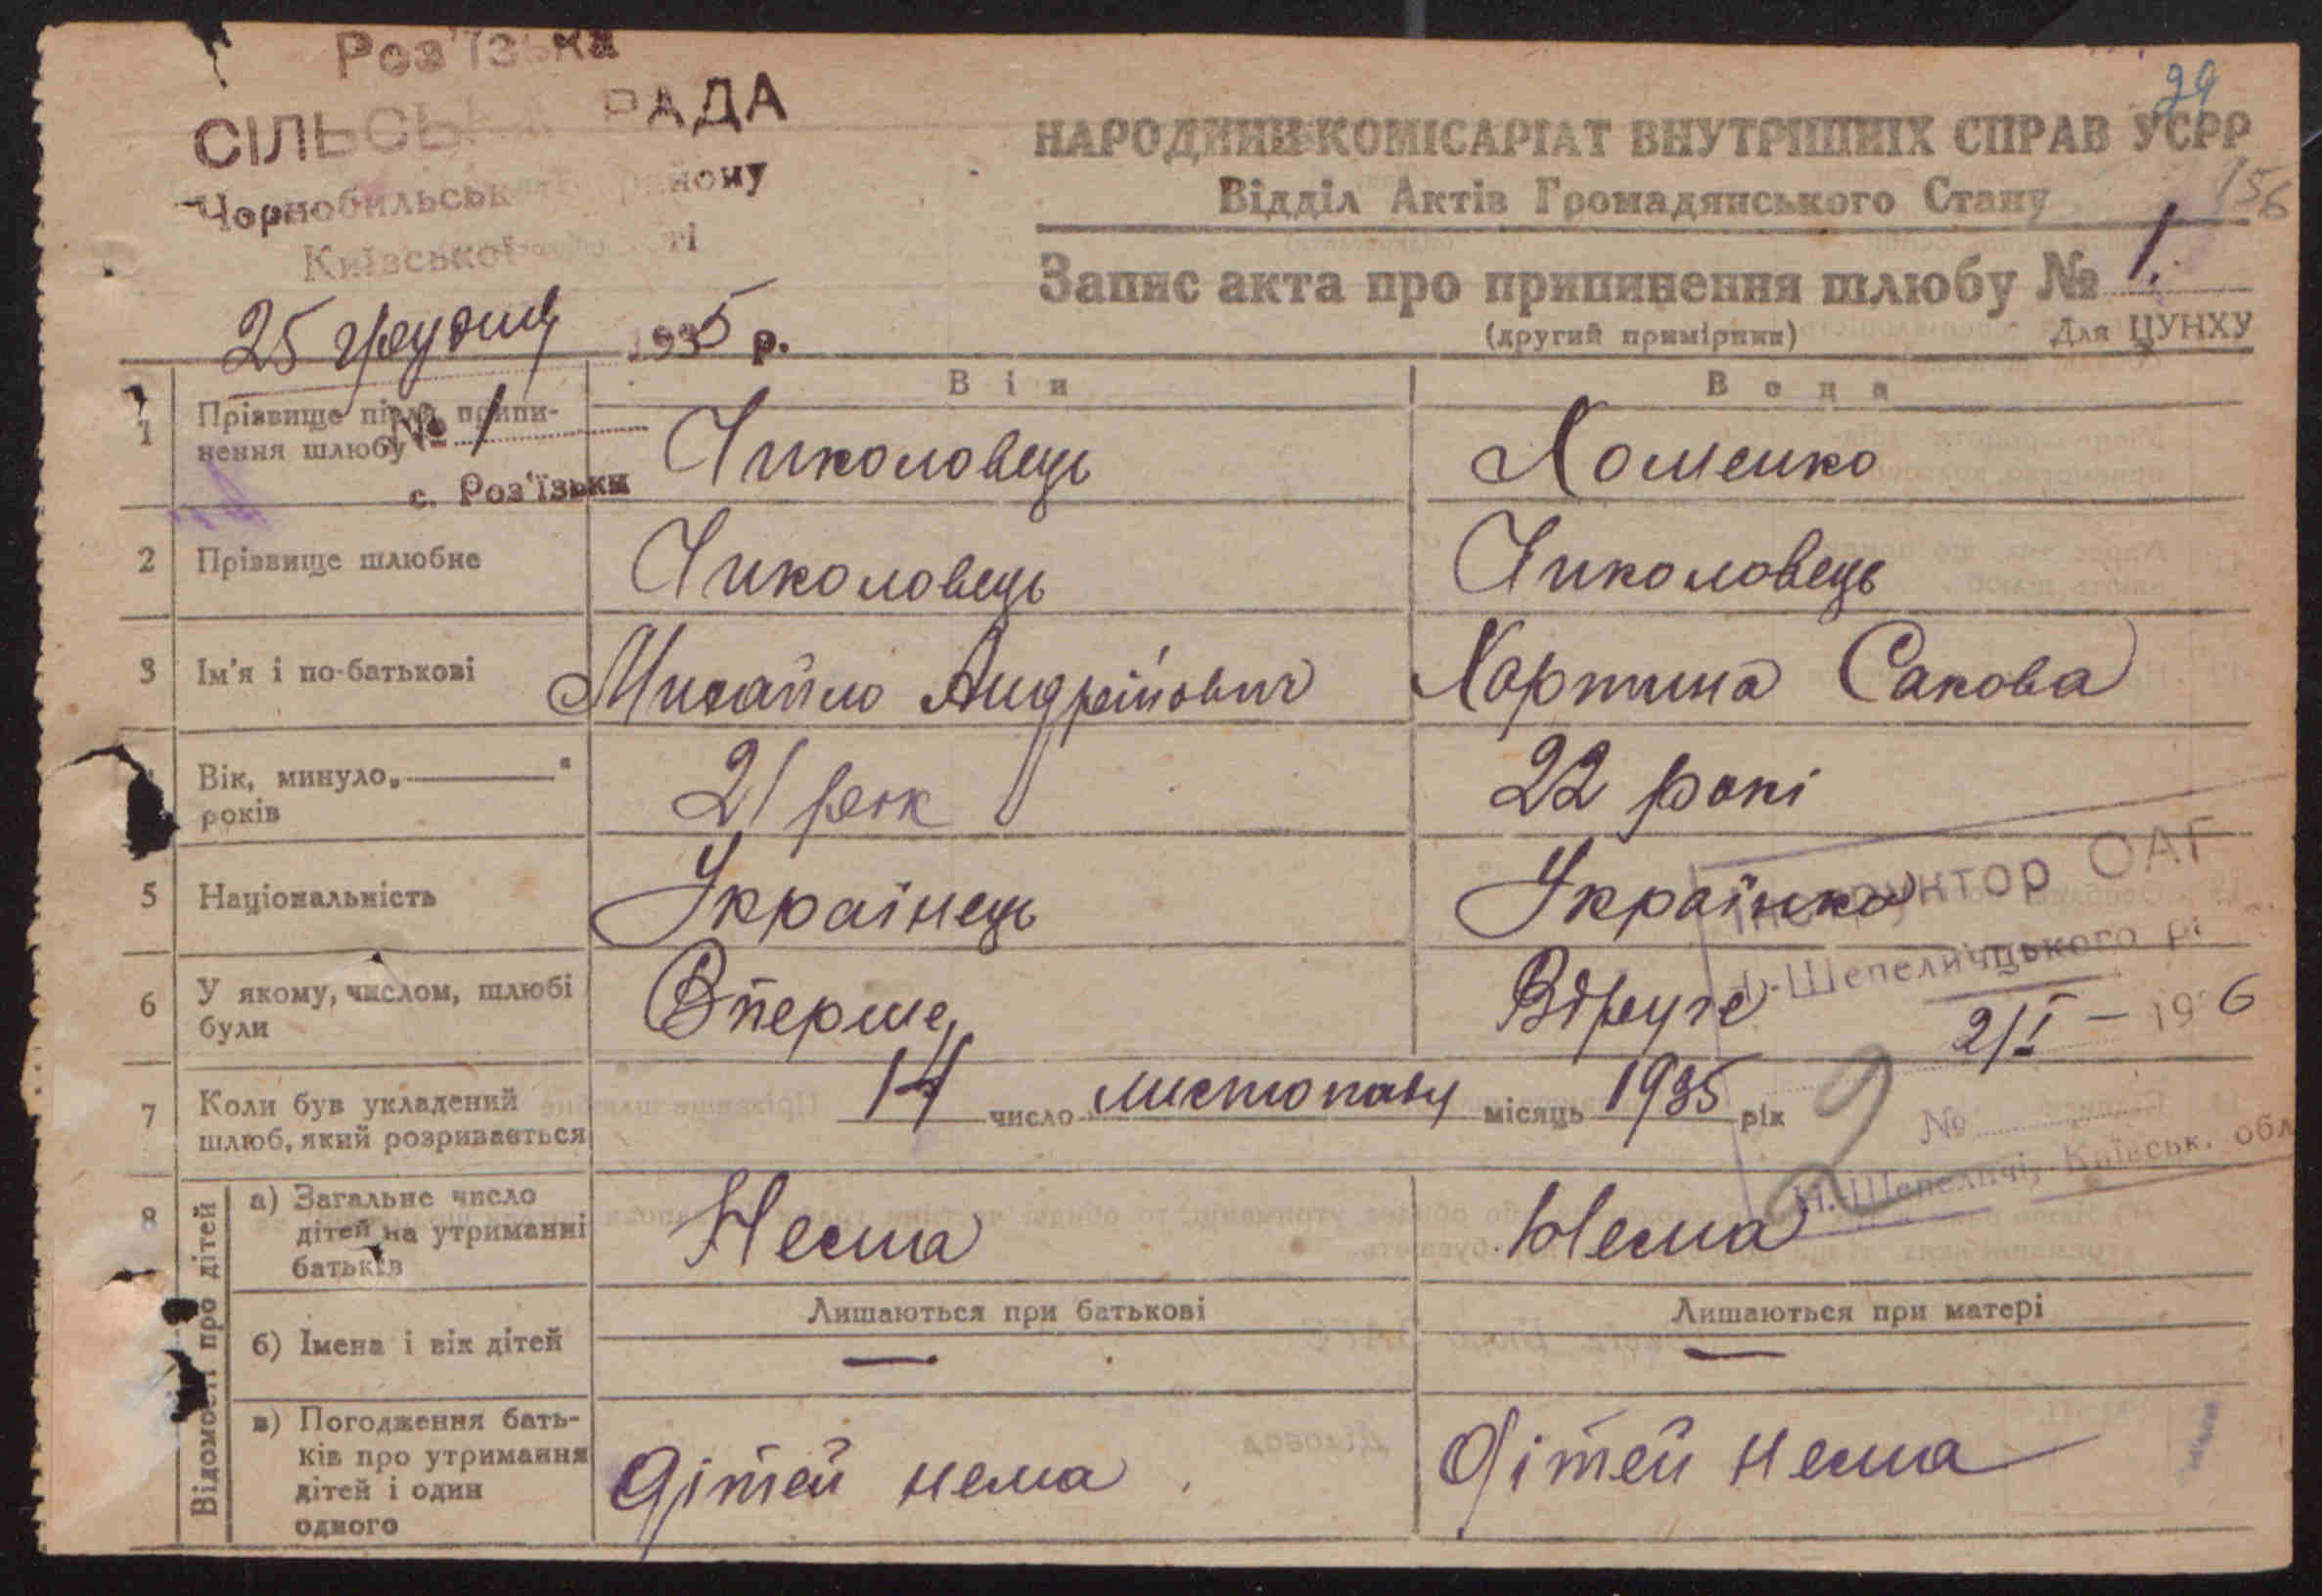 Роз'їзька
СІЛЬСЬКА РАДА
Чорнобильськ району
Київської ті
25 грудня 1935 р.
№ 1
с. Роз'їзьки
29
НАРОДНИЙ КОМІСАРІАТ ВНУТРІШНІХ СПРАВ УСРР
Відділ Актів Громадянського Стану
156
Запис акта про припинення шлюбу № 1.
(другий примірник) Для ЦУНХУ
Він Вона
1 Прізвище після припи-
нення шлюбу Чиколовець Хоменко
2 Прізвище шлюбне Чиколовець Чиколовець
3 Ім'я і по-батькові Михайло Андрійович Хортина Сакова
Вік, минуло „ “
років 21 рок 22 рокі
5 Національність Українець Українка
6 У якому, числом, шлюбі
були Вперше Вдруге
Інструктор ОАГ
Н-Шепеличцького рі
2/I – 19 6
№
Н.-Шепеличі, Київськ. обл
2
7 Коли був укладений
шлюб, який розривається 14 число листопада місяць 1935 рік
8 Відомості про дітей
а) Загальне число
дітей на утриманні
батьків Нема Нема
Лишаються при батькові Лишаються при матері
б) Імена і вік дітей — —
в) Погодження бать-
ків про утримання
дітей і один
одного Дітей нема Дітей нема